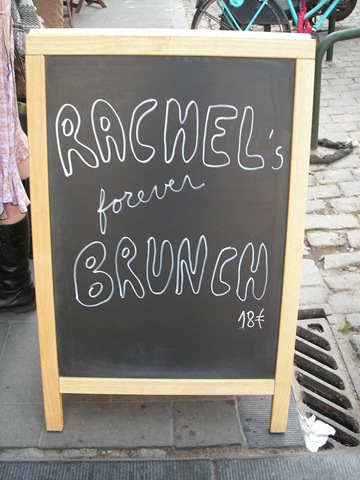 RACHEL's
forever
BRUNCH
18€